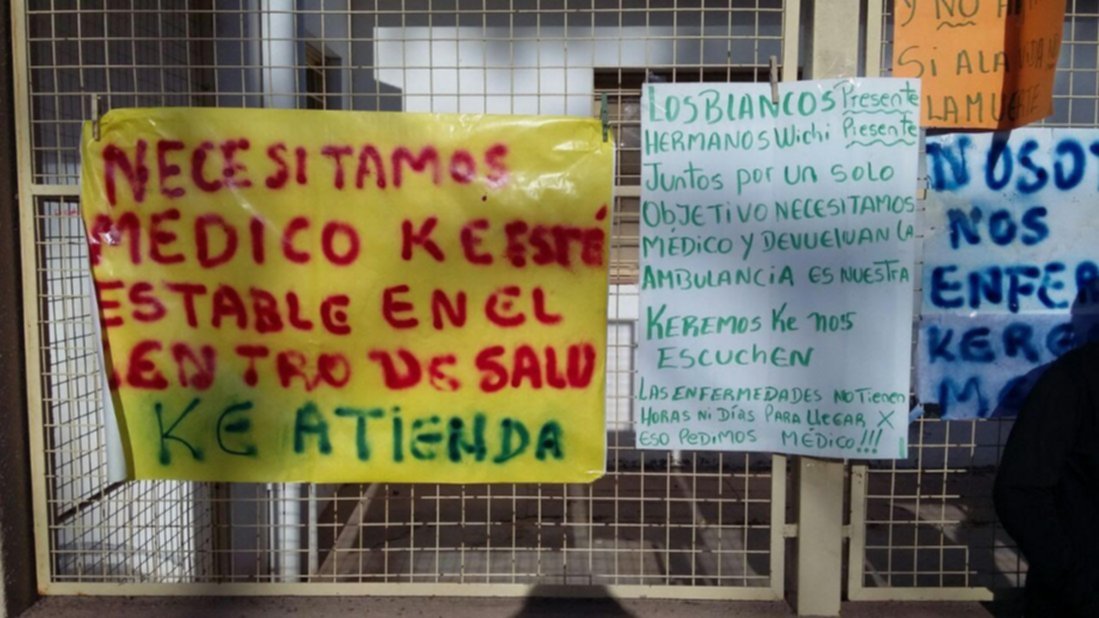 NECESITAMOS
MEDICO KE ESTÉ
ESTABLE EN EL
CENTRO DE SALUD
KE ATIENDA
LOS BLANCOS Presente
HERMANOS Wichi Presente
Juntos por un solo
OBJETIVO NECESITAMOS
MÉDICO Y DEVUELVAN LA
AMBULANCIA ES NUESTRA
KEREMOS KE NOS
ESCUCHEN
LAS ENFERMEDADES NO TIENEN
HORAS NI DÍAS PARA LLEGAR X
ESO PEDIMOS MÉDICO!!!
Y NO A
Si A LA
LA MUERTE
NOSOT
NOS
ENFER
KERE